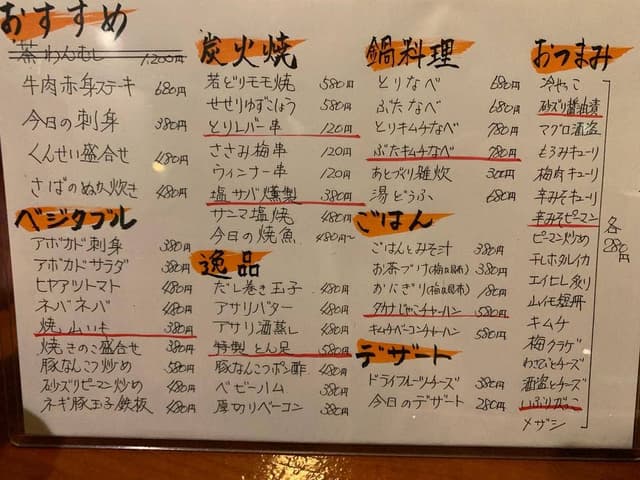 おすすめ
茶わんむし 1,200円
牛肉赤身ステーキ 680円
今日の刺身 380円
くんせい盛合せ 480円
さばのぬか炊き 480円
ベジタブル
アボカド刺身 380円
アボカドサラダ 380円
ヒヤアツトマト 480円
ネバネバ 480円
焼山いも 380円
焼きのこ盛合せ 380円
豚なんこつ炒め 580円
砂ズリピーマン炒め 480円
ネギ豚玉子鉄板 480円
炭火焼
若どりモモ焼 580円
せせりゆずこしょう 580円
とりレバー串 120円
ささみ梅串 120円
ウィンナー串 120円
塩サバ燻製 380円
サンマ塩焼 480円
今日の焼魚 480円〜
逸品
だし巻き玉子 480円
アサリバター 480円
アサリ酒蒸し 480円
特製とん足 580円
豚なんこつポン酢 480円
ベビーハム 380円
厚切りベーコン 380円
鍋料理
とりなべ 680円
ぶたなべ 680円
とりキムチなべ 780円
ぶたキムチなべ 780円
あとづくり雑炊 300円
湯どうふ 680円
ごはん
ごはんとみそ汁 380円
お茶づけ(梅or昆布) 380円
おにぎり(梅or昆布) 180円
タカナじゃこチャーハン 580円
キムチベーコンチャーハン 580円
デザート
ドライフルーツチーズ 380円
今日のデザート 280円
おつまみ
冷やっこ
砂ズリ醤油漬
マグロ酒盗
もろみキューリ
梅肉キューリ
辛みそキューリ
辛みそピーマン
ピーマン炒め
干しホタルイカ
エイヒレ炙り
山イモ短冊
キムチ
梅クラゲ
わさびとチーズ
酒盗とチーズ
いぶりがっこ
メザシ
各280円